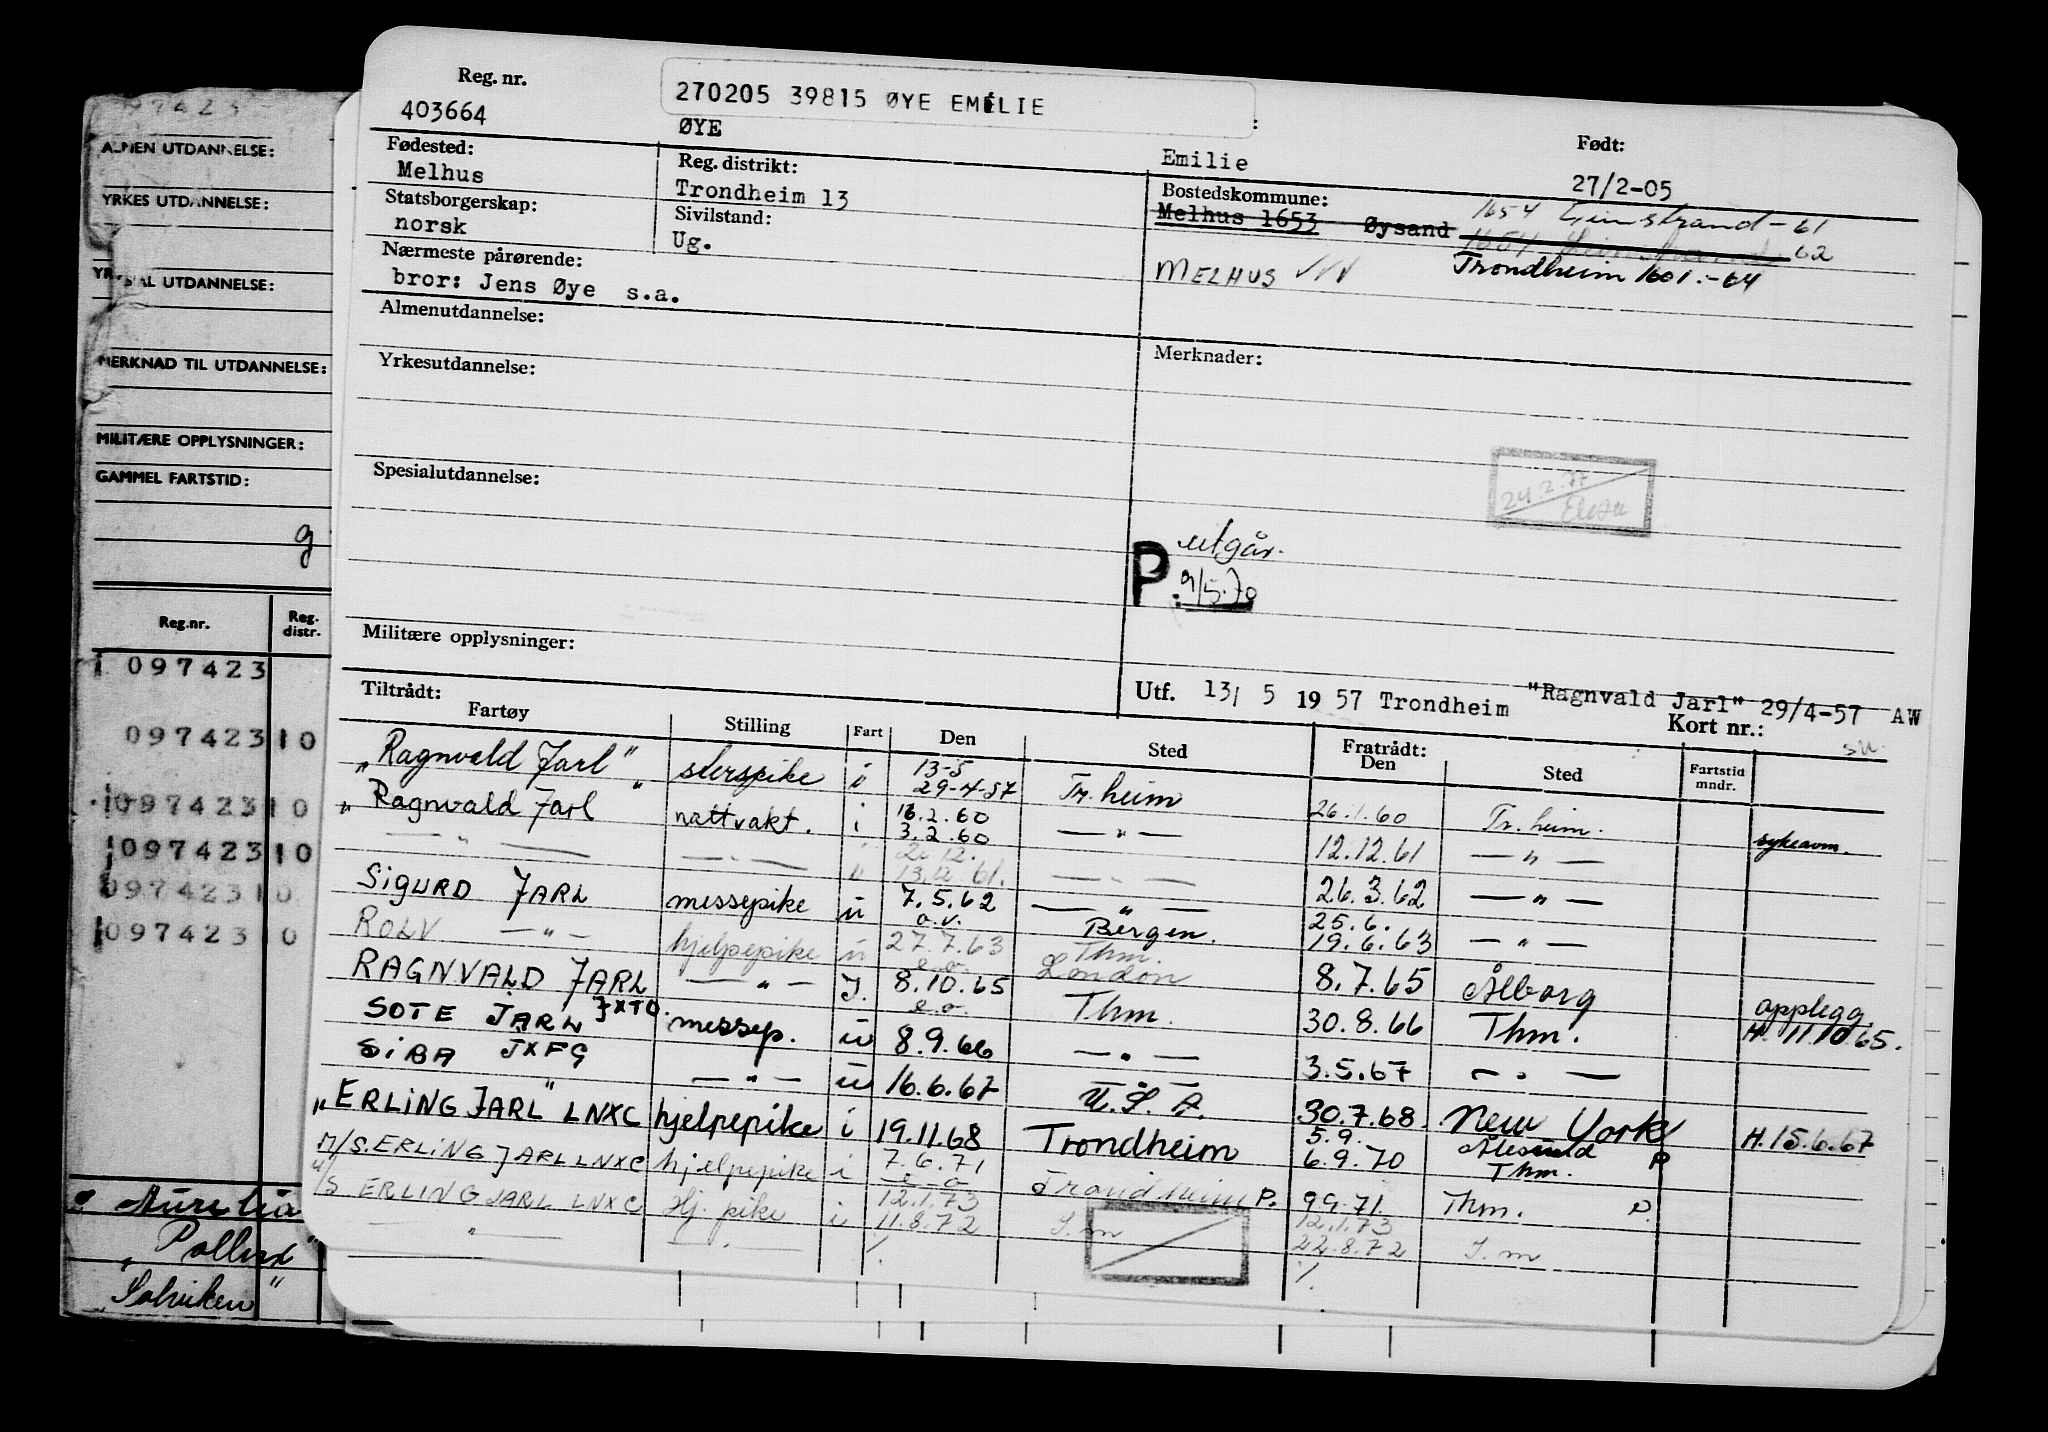 097423
ALMEN UTDANNELSE:
YRKES UTDANNELSE:
UTDANNELSE:
MERKNAD TIL UTDANNELSE:
MILITÆRE OPPLYSNINGER:
GAMMEL FARTSTID:
g
Reg.nr. Reg. distr.
097423
097423 10
097423 10
097423 10
097423 10
097423 10
Aurelia
"Pollux"
"Solviken"
Reg. nr.
403664
270205 39815 ØYE EMILIE
ØYE
Emilie
Født:
27/2-05
Fødested:
Melhus
Reg. distrikt:
Trondheim 13
Bostedskommune:
Melhus 1653 Øysand
1654 -61
1654 62
MELHUS Trondheim 1601.-64
Statsborgerskap:
norsk
Sivilstand:
Ug.
Nærmeste pårørende:
bror: Jens Øye s.a.
Almenutdannelse:
Yrkesutdannelse:
Merknader:
24.2.77
Spesialutdannelse:
P utgår.
9/5.70
Militære opplysninger:
Utf. 13/ 5 19 57 Trondheim "Ragnvald Jarl" 29/4-57 AW
Kort nr.:
Tiltrådt:
Fartøy Stilling Fart Den Sted Fratrådt: Den Sted Fartstid mndr.
"Ragnvald Jarl" slerspike i 13-5 29-4-57 Tr. heim 26.1.60 Tr. heim. sykeavm.
"Ragnvald Jarl" nattvakt. i 16.2.60 3.2.60 — " — 12.12.61 — " —
— " — — " — 13.12.61. — " — 26.3.62 — " —
SIGURD JARL messepike u 7.5.62 — " — 25.6. 19.6.63 — " —
ROLV — " — hjelpepike u 27.7.63 Bergen. Thm. London 8.7.65 Ålborg opplegg.
RAGNVALD JARL — " — I. 8.10.65 Thm. 30.8.66 Thm. H. 11.10.65.
SOTE JARL JXTO. messep. u 8.9.66 — " — 3.5.67 — " —
SIBA JXFG — " — u 16.6.67 U.S.A. 30.7.68. New York H. 15.6.67
"ERLING JARL" LNXC hjelpepike i 19.11.68 Trondheim 5.9. 6.9.70 Ålesund Thm. P
M/S. ERLING JARL LNXC hjelpepike i 7.6.71 Trondheim P. 9.9.71. Thm. P.
M/S ERLING JARL LNXC Hj. pike i 12.1.73 11.8.72 12.1.73 22.8.72
— " — — " —